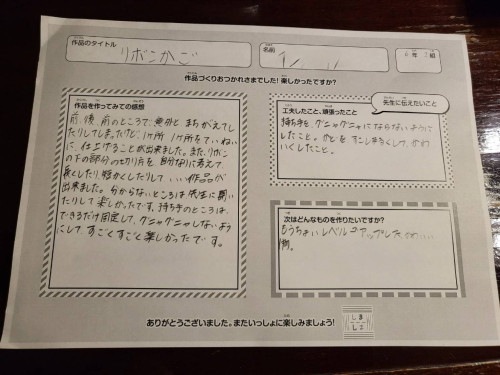 作品のタイトル
リボンかご
名前
年 組
作品づくりおつかれさまでした!楽しかったですか?
作品を作ってみての感想
前、後 前のところで、意外と まちがえてし
たりしてしまったけど、1ヶ所 1ヶ所をていねい
に、仕上げることが出来ました。また、リボン
の下の部分の切り方を 自分なりに考えて
長くしたり、短かくしたりして、いい作品が
出来ました。分からないところは先生に聞い
たりして楽しかったです。持ち手のところは、
できるだけ固定して、グニャグニャしないよう
にして、すごくすごく楽しかったです。
先生に伝えたいこと
工夫したこと、頑張ったこと
持ち手を、グニャグニャにならないように
したこと。かどを すこしまるくして、かわ
いくしたこと。
次はどんなものを作りたいですか?
もうちょい レベル アップした
ありがとうございました。またいっしょに楽しみましょう!